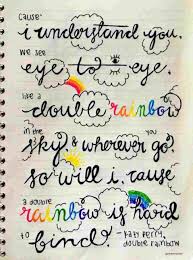 Cause'
i understand you.
we see
eye to eye.
like a
double rainbow
in the you
sky. & wherever go
so will i. cause
a double
rainbow is hard
to find. - Katy Perry,
double rainbow